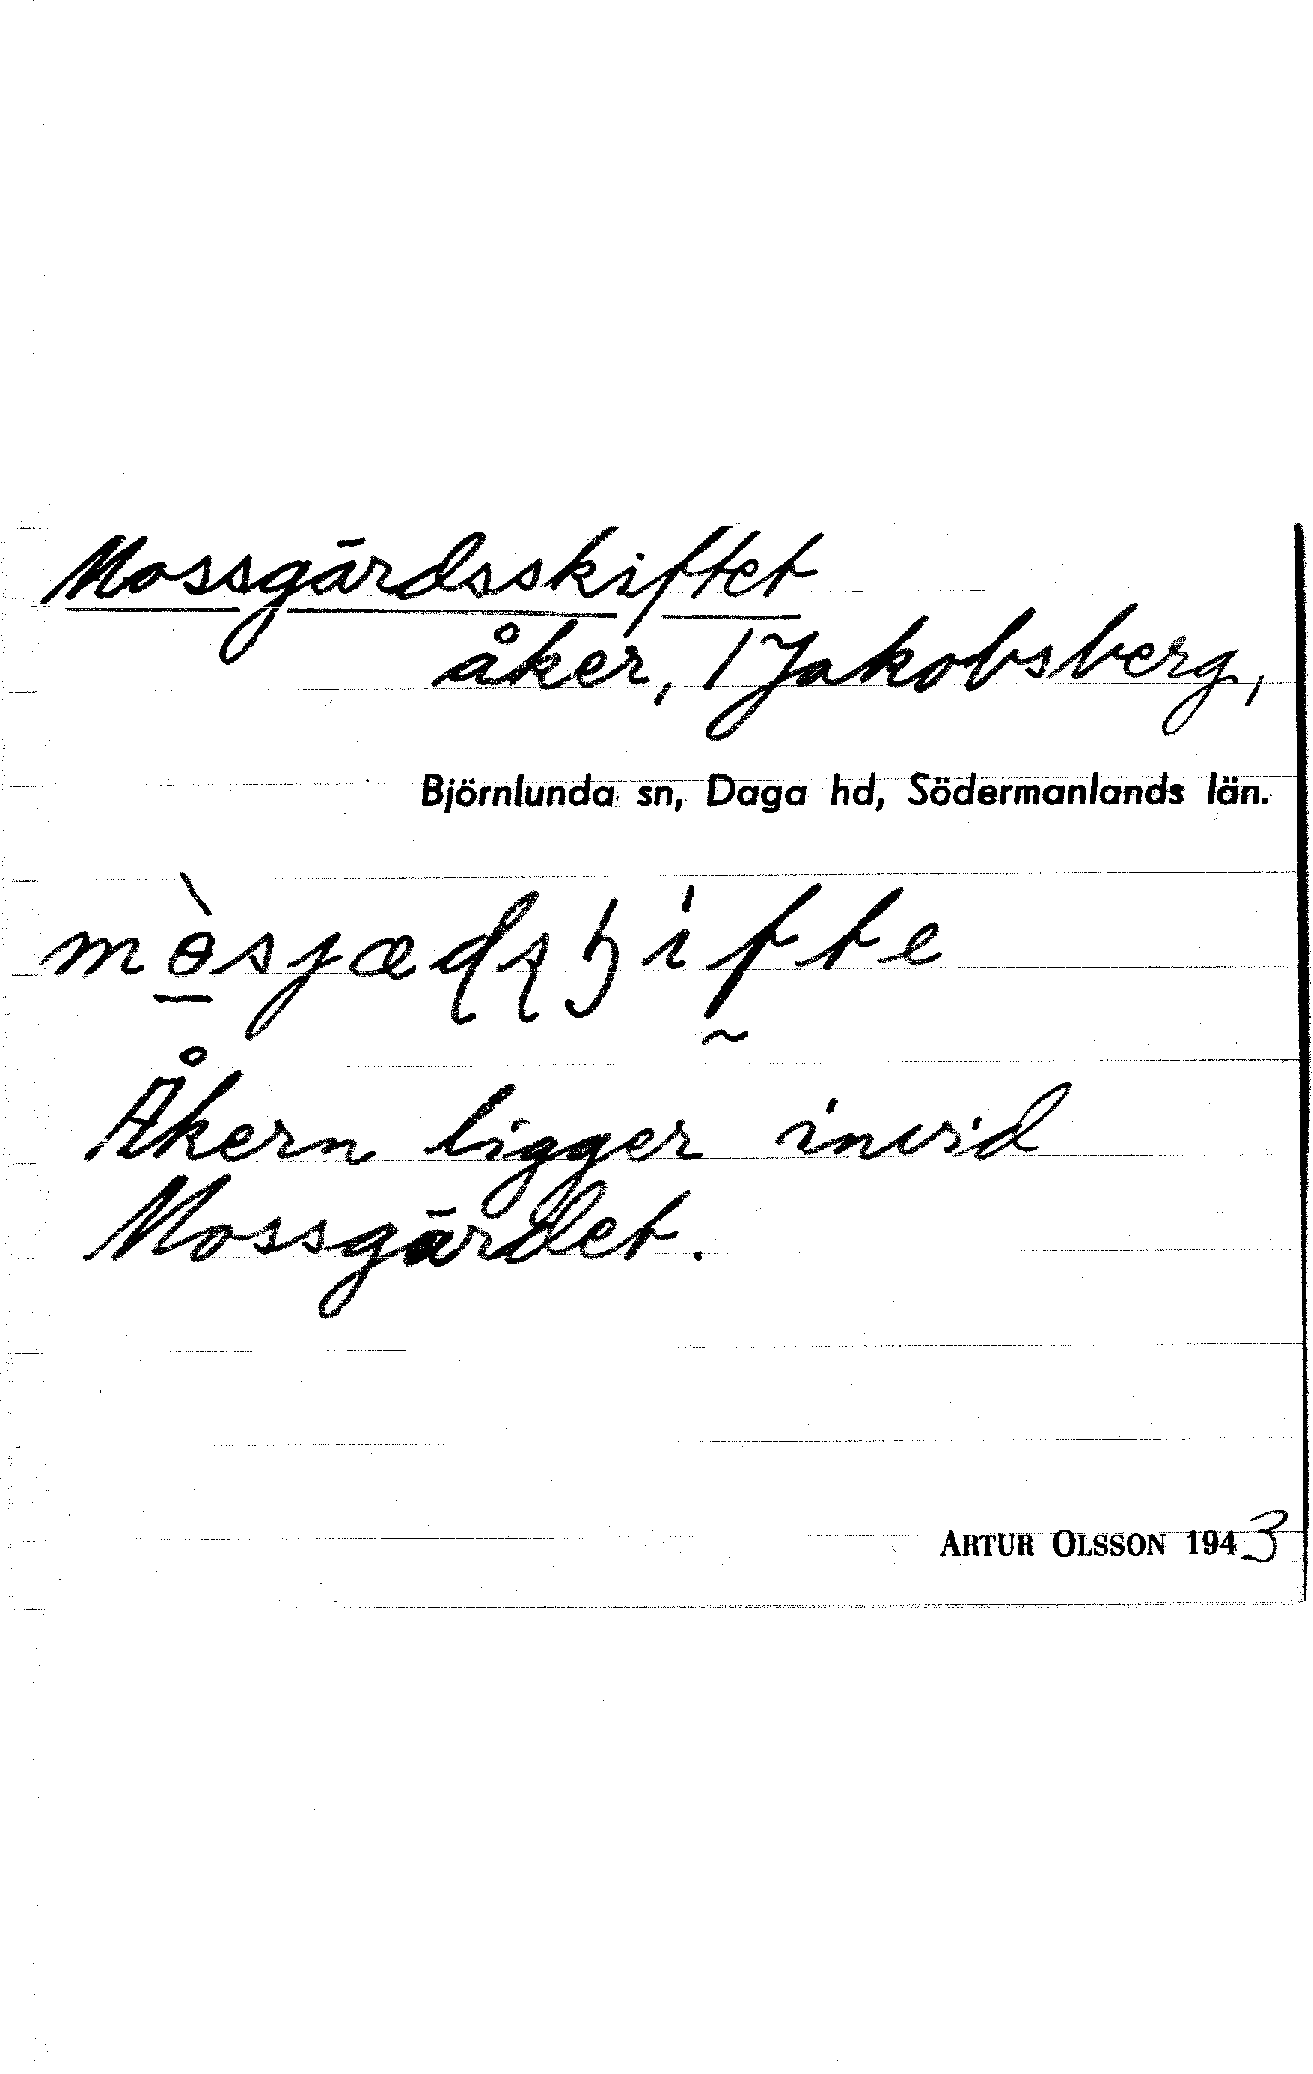 Mossgärdsskiftet
åker, 1 Jakobsberg,
Björnlunda sn, Daga hd, Södermanlands län.
Åkern ligger invid
Mossgärdet.
ARTUR OLSSON 1943